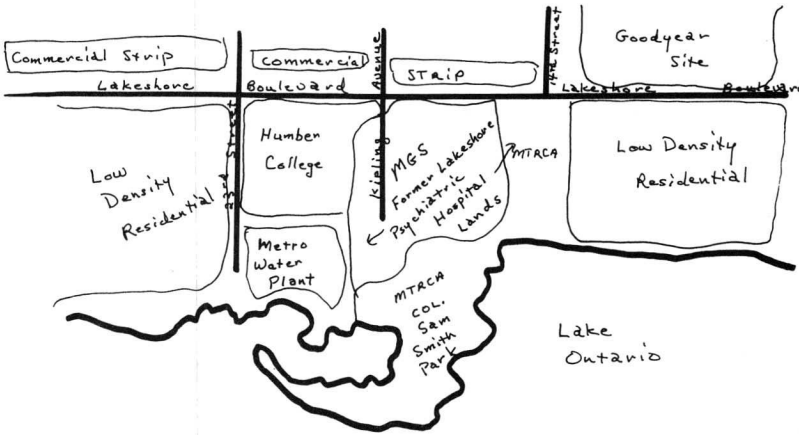 Commercial Strip
commercial
STRIP
Goodyear
Site
Lakeshore Boulevard
Lakeshore Boulevard
23rd Street
Kipling Avenue
14th Street
Low
Density
Residential
Humber
College
MGS
Former Lakeshore
Psychiatric
Hospital
Lands
MTRCA
Low Density
Residential
Metro
Water
Plant
MTRCA
COL.
Sam
Smith
Park
Lake
Ontario